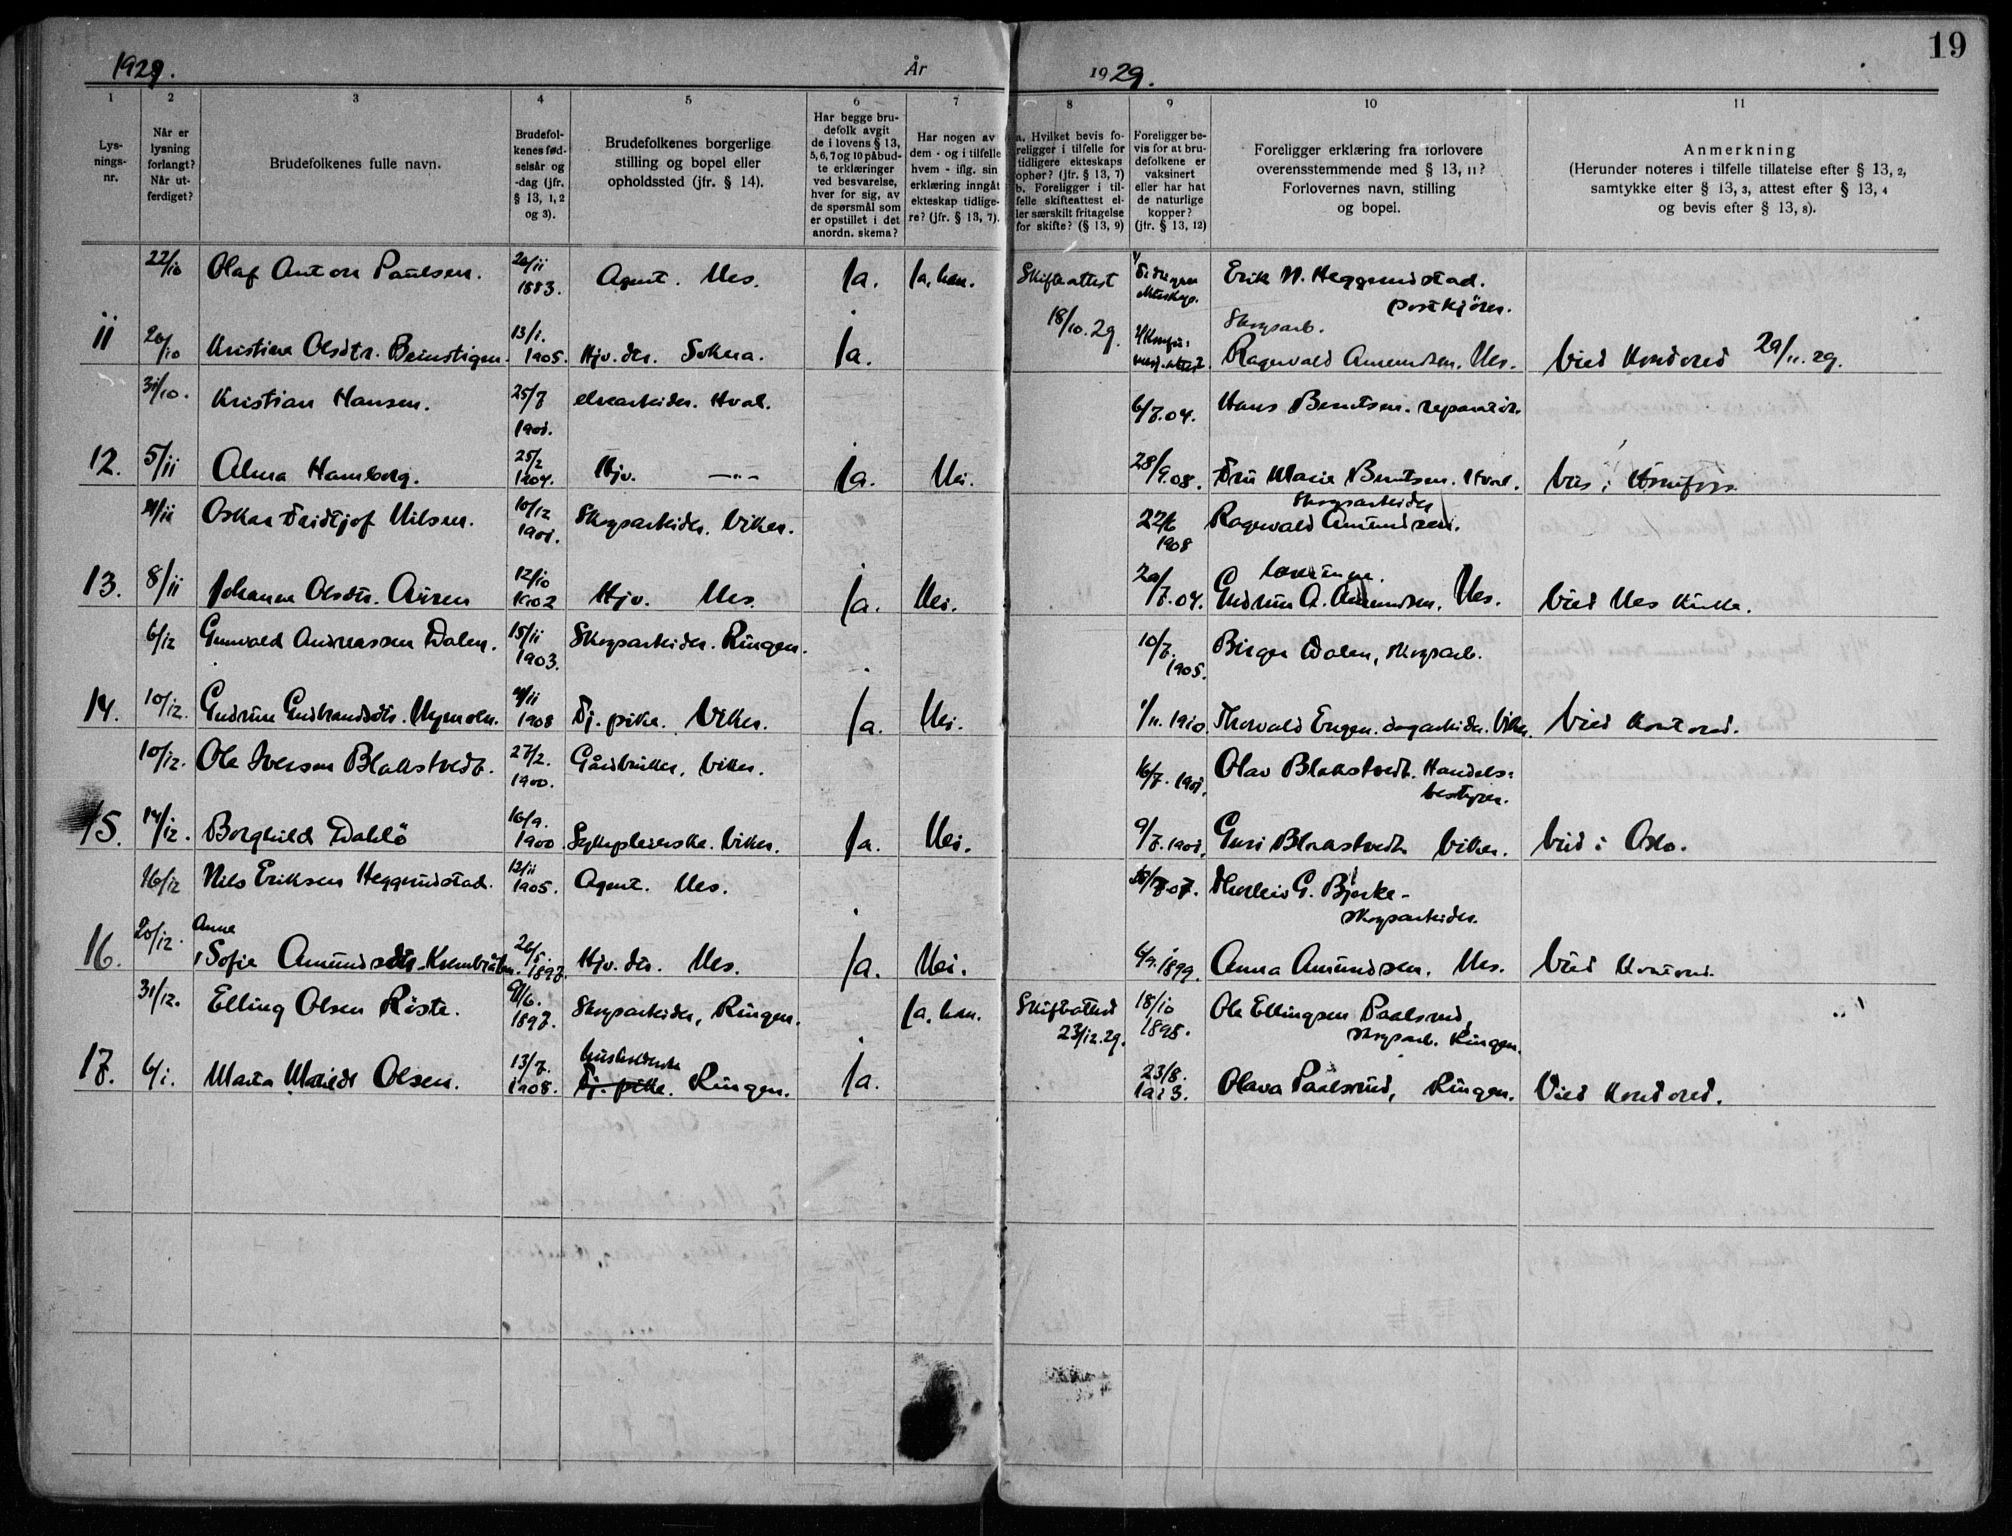 19
1929.
År
1929.
1
2
3
4
5
6
7
8
9
10
11
Lys-
nings-
nr.
Når er
lysning
forlangt?
Når ut-
ferdiget?
Brudefolkenes fulle navn.
Brudefol-
kenes fød-
selsår og
-dag (jfr.
§ 13, 1, 2
og 3).
Brudefolkenes borgerlige
stilling og bopel eller
opholdssted (jfr. § 14).
Har begge bru-
defolk avgit
de i lovens § 13,
5, 6, 7 og 10 påbud-
te erklæringer
ved besvarelse,
hver for sig, av
de spørsmål som
er opstillet i det
anordn. skema?
Har nogen av
dem - og i tilfelle
hvem - iflg. sin
erklæring inngåt
ekteskap tidlige-
re? (jfr. § 13, 7).
a. Hvilket bevis fo-
religger i tilfelle for
tidligere ekteskaps
ophør? (jfr. § 13, 7)
b. Foreligger i til-
felle skifteattest el-
ler særskilt fritagelse
for skifte? (§ 13, 9)
Foreligger be-
vis for at bru-
defolkene er
vaksinert
eller har hat
de naturlige
kopper?
(jfr. § 13, 12)
Foreligger erklæring fra forlovere
overensstemmende med § 13, 11?
Forlovernes navn, stilling
og bopel.
Anmerkning
(Herunder noteres i tilfelle tillatelse efter § 13, 2,
samtykke efter § 13, 3, attest efter § 13, 4
og bevis efter § 13, 8).
22/10 Olaf Anton Paulsen. 20/11 1883. Agent. Nes. Ja. Ja, han. Skifteattest 18/10.29. Erik N. Heggenistad. postkjörer.
11 20/10 Kristine Olsdtr. Beinstigen. 13/1. 1905. Hjv. dtr. Sokna. Ja. Skogsarb. Ragnvald Amundsen. Nes. Vied Kontored 29/11.29.
31/10. Kristian Hansen. 25/7 1901. elvearbeider. Hval. 6/7.04. Hans Berntsen. reparatör.
12. 5/11 Alma Hamborg. 25/2 1904. Hjv. —"— Ja. Nei. 28/9.08. Fru Marie Berntsen. Hval. Vies i Hönefoss.
4/11 Oskar Fridtjof Nilsen. 10/12 1901. Skogsarbeider. Viker. 22/6 1908 Ragnvald Amundsen. Skogsarbeider
13. 8/11 Johanne Olsdtr. Auren 12/10 1902 Hjv. Nes. Ja. Nei. 20/7.04. Gudrun A. Amundsen. Nes. Vied Nes Kirke.
6/12 Gunvald Andreassen Dalen. 15/11 1903. Skogsarbeider. Ringen. 10/7. 1905. Birger Dalen, skogsarb.
14. 10/12. Gudrun Gudbrandsdtr. Myrmoen. 4/11 1908 Tj. pike. Viker. Ja. Nei. 1/11.1910. Thorvald Engen. sagarbeider. Viker. Vied Kontored.
10/12. Ole Iversen Blakstvedt. 27/2. 1900. Gårdbruker. Viker. 16/7.1901. Olav Blakstvedt. Handels-
bestyrer.
15. 14/12. Borghild Dahlö 16/9. 1900. Sykepleierske. Viker. Ja. Nei. 9/7.1901. Guri Blakstvedt. Viker. Vied i Oslo.
16/12 Nils Eriksen Heggenistad. 12/11 1905. Agent. Nes. 07. Thorleiv G. Bjerke-
skogsarbeider.
16. 20/12. Anne
Sofie Amundsdtr. 26/5. 1897. Hjv. dtr. Nes. Ja. Nei. 6/9.1899. Anna Amundsen. Nes. Vied Kontored.
31/12. Elling Olsen Röste. 1897. Skogsarbeider, Ringen. Ja, han. Skifteattest 23/12.29. 18/10 1898. Ole Ellingsen Paalsrud,
skogsarb. Ringen.
17. 6/1. Marta Matilde Olsen. 13/7. 1908. husholderske
Tj. pike. Ringen. Ja. 23/8. 1913. Olava Paalsrud, Ringen. Vied Kontored.